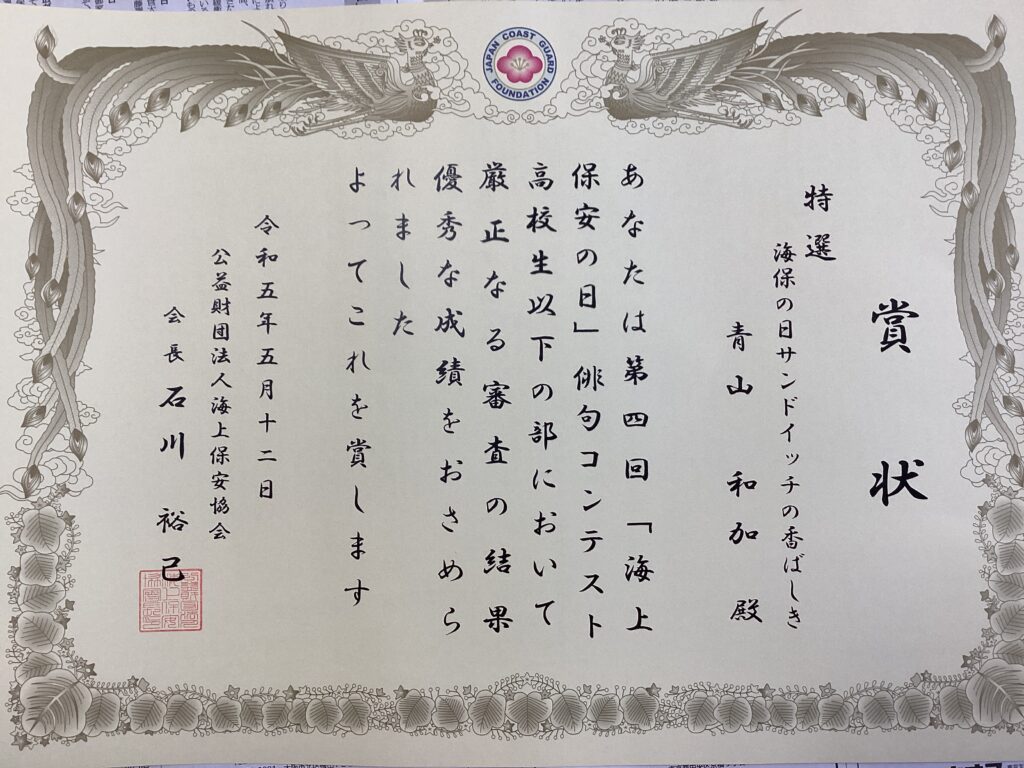 JAPAN COAST GUARD FOUNDATION
賞状
特選
海保の日サンドイッチの香ばしき
青山 和加 殿
あなたは第四回「海上
保安の日」俳句コンテスト
高校生以下の部において
厳正なる審査の結果
優秀な成績をおさめら
れました
よってこれを賞します
令和五年五月十二日
公益財団法人海上保安協会
会長 石川 裕己